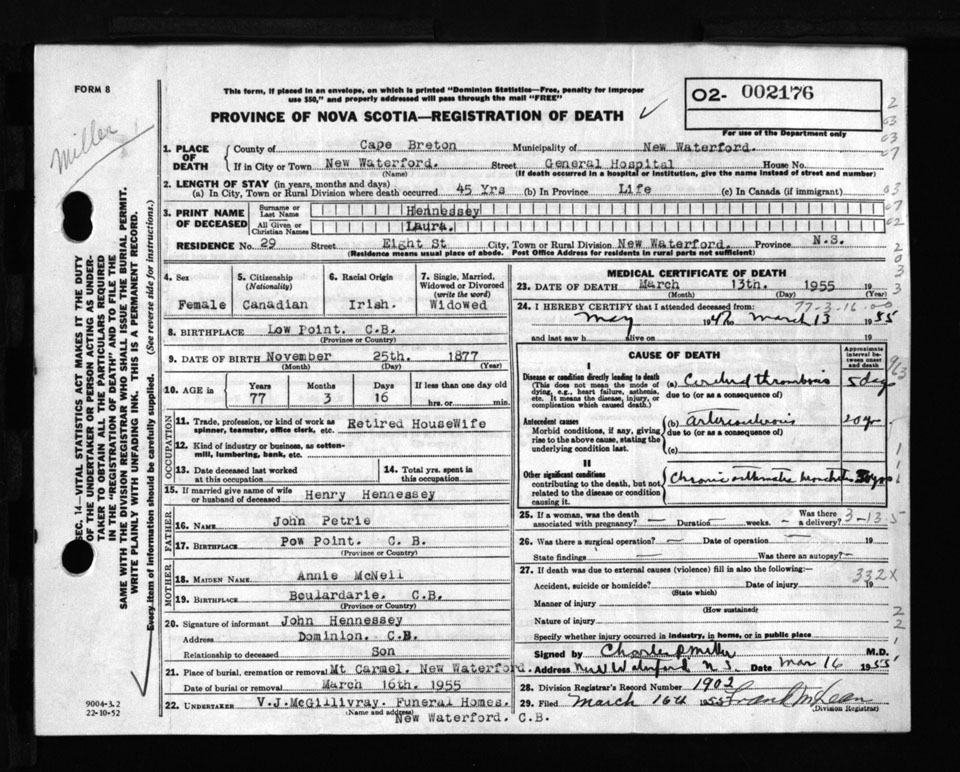 FORM 8
Miller
This form, if placed in an envelope, on which is printed "Dominion Statistics—Free, penalty for improper
use $50," and properly addressed will pass through the mail "FREE"
PROVINCE OF NOVA SCOTIA—REGISTRATION OF DEATH
02- 002176
For use of the Department only
SEC. 14—VITAL STATISTICS ACT MAKES IT THE DUTY
OF THE UNDERTAKER OR PERSON ACTING AS UNDER-
TAKER TO OBTAIN ALL THE PARTICULARS REQUIRED
IN THE "REGISTRATION OF DEATH" AND TO FILE THE
SAME WITH THE DIVISION REGISTRAR WHO SHALL ISSUE THE BURIAL PERMIT.
WRITE PLAINLY WITH UNFADING INK. THIS IS A PERMANENT RECORD.
Every item of information should be carefully supplied. (See reverse side for instructions.)
1. PLACE OF DEATH County of Cape Breton Municipality of New Waterford.
If in City or Town New Waterford. Street General Hospital House No.
(Name) (If death occurred in a hospital or institution, give the name instead of street and number)
2. LENGTH OF STAY (in years, months and days)
(a) In City, Town or Rural Division where death occurred 45 Yrs (b) In Province Life (c) In Canada (if immigrant)
3. PRINT NAME OF DECEASED Surname or Last Name Hennessey
All Given or Christian Names Laura.
RESIDENCE No. 29 Street Eight St City, Town or Rural Division New Waterford. Province N.S.
(Residence means usual place of abode. Post Office Address for residents in rural parts not sufficient)
4. Sex 5. Citizenship (Nationality) 6. Racial Origin 7. Single, Married, Widowed or Divorced (write the word)
Female Canadian Irish. Widowed
8. BIRTHPLACE Low Point. C.B.
(Province or Country)
9. DATE OF BIRTH November 25th. 1877
(Month) (Day) (Year)
10. AGE in Years Months Days If less than one day old
77 3 16 hrs. or min.
OCCUPATION
11. Trade, profession, or kind of work as spinner, teamster, office clerk, etc. Retired HouseWife
12. Kind of industry or business, as cotton-mill, lumbering, bank, etc.
13. Date deceased last worked at this occupation
14. Total yrs. spent in this occupation
15. If married give name of wife or husband of deceased Henry Hennessey
FATHER
16. NAME John Petrie
17. BIRTHPLACE Pow Point. C. B.
(Province or Country)
MOTHER
18. MAIDEN NAME Annie McNeil
19. BIRTHPLACE Boulardarie. C.B.
(Province or Country)
20. Signature of informant John Hennessey
Address Dominion. C.B.
Relationship to deceased Son
21. Place of burial, cremation or removal Mt Carmel. New Waterford.
Date of burial or removal March 16th. 1955
22. UNDERTAKER V.J.McGillivray. Funeral Homes.
(Name and address)
New Waterford. C.B.
9004-3.2
22-10-52
MEDICAL CERTIFICATE OF DEATH
23. DATE OF DEATH March 13th. 1955
(Month) (Day) (Year)
24. I HEREBY CERTIFY that I attended deceased from: 77-3-16-00
May 1947 to March 13 1955
and last saw h alive on 19
CAUSE OF DEATH
Approximate interval between onset and death
I
Disease or condition directly leading to death (a) Cerebral thrombosis 5 days
(This does not mean the mode of dying, e.g., heart failure, asthenia, etc. It means the disease, injury, or complication which caused death.)
due to (or as a consequence of)
Antecedent causes (b) Arteriosclerosis 20 yr
Morbid conditions, if any, giving rise to the above cause, stating the underlying condition last.
due to (or as a consequence of)
(c)
II
Other significant conditions Chronic asthmatic bronchitis 30 yrs
contributing to the death, but not related to the disease or condition causing it.
25. If a woman, was the death associated with pregnancy? — Duration weeks. — Was there a delivery? 3-13-5
26. Was there a surgical operation? — Date of operation — 19
State findings Was there an autopsy? —
27. If death was due to external causes (violence) fill in also the following: 332X
Accident, suicide or homicide? Date of injury 19
(State which)
Manner of injury
(How sustained)
Nature of injury
Specify whether injury occurred in industry, in home, or in public place
Signed by Charles P Miller M.D.
Address New Waterford N S. Date Mar 16 1955
28. Division Registrar's Record Number 1902
29. Filed March 16th 1955 Frank McLean
(Division Registrar)